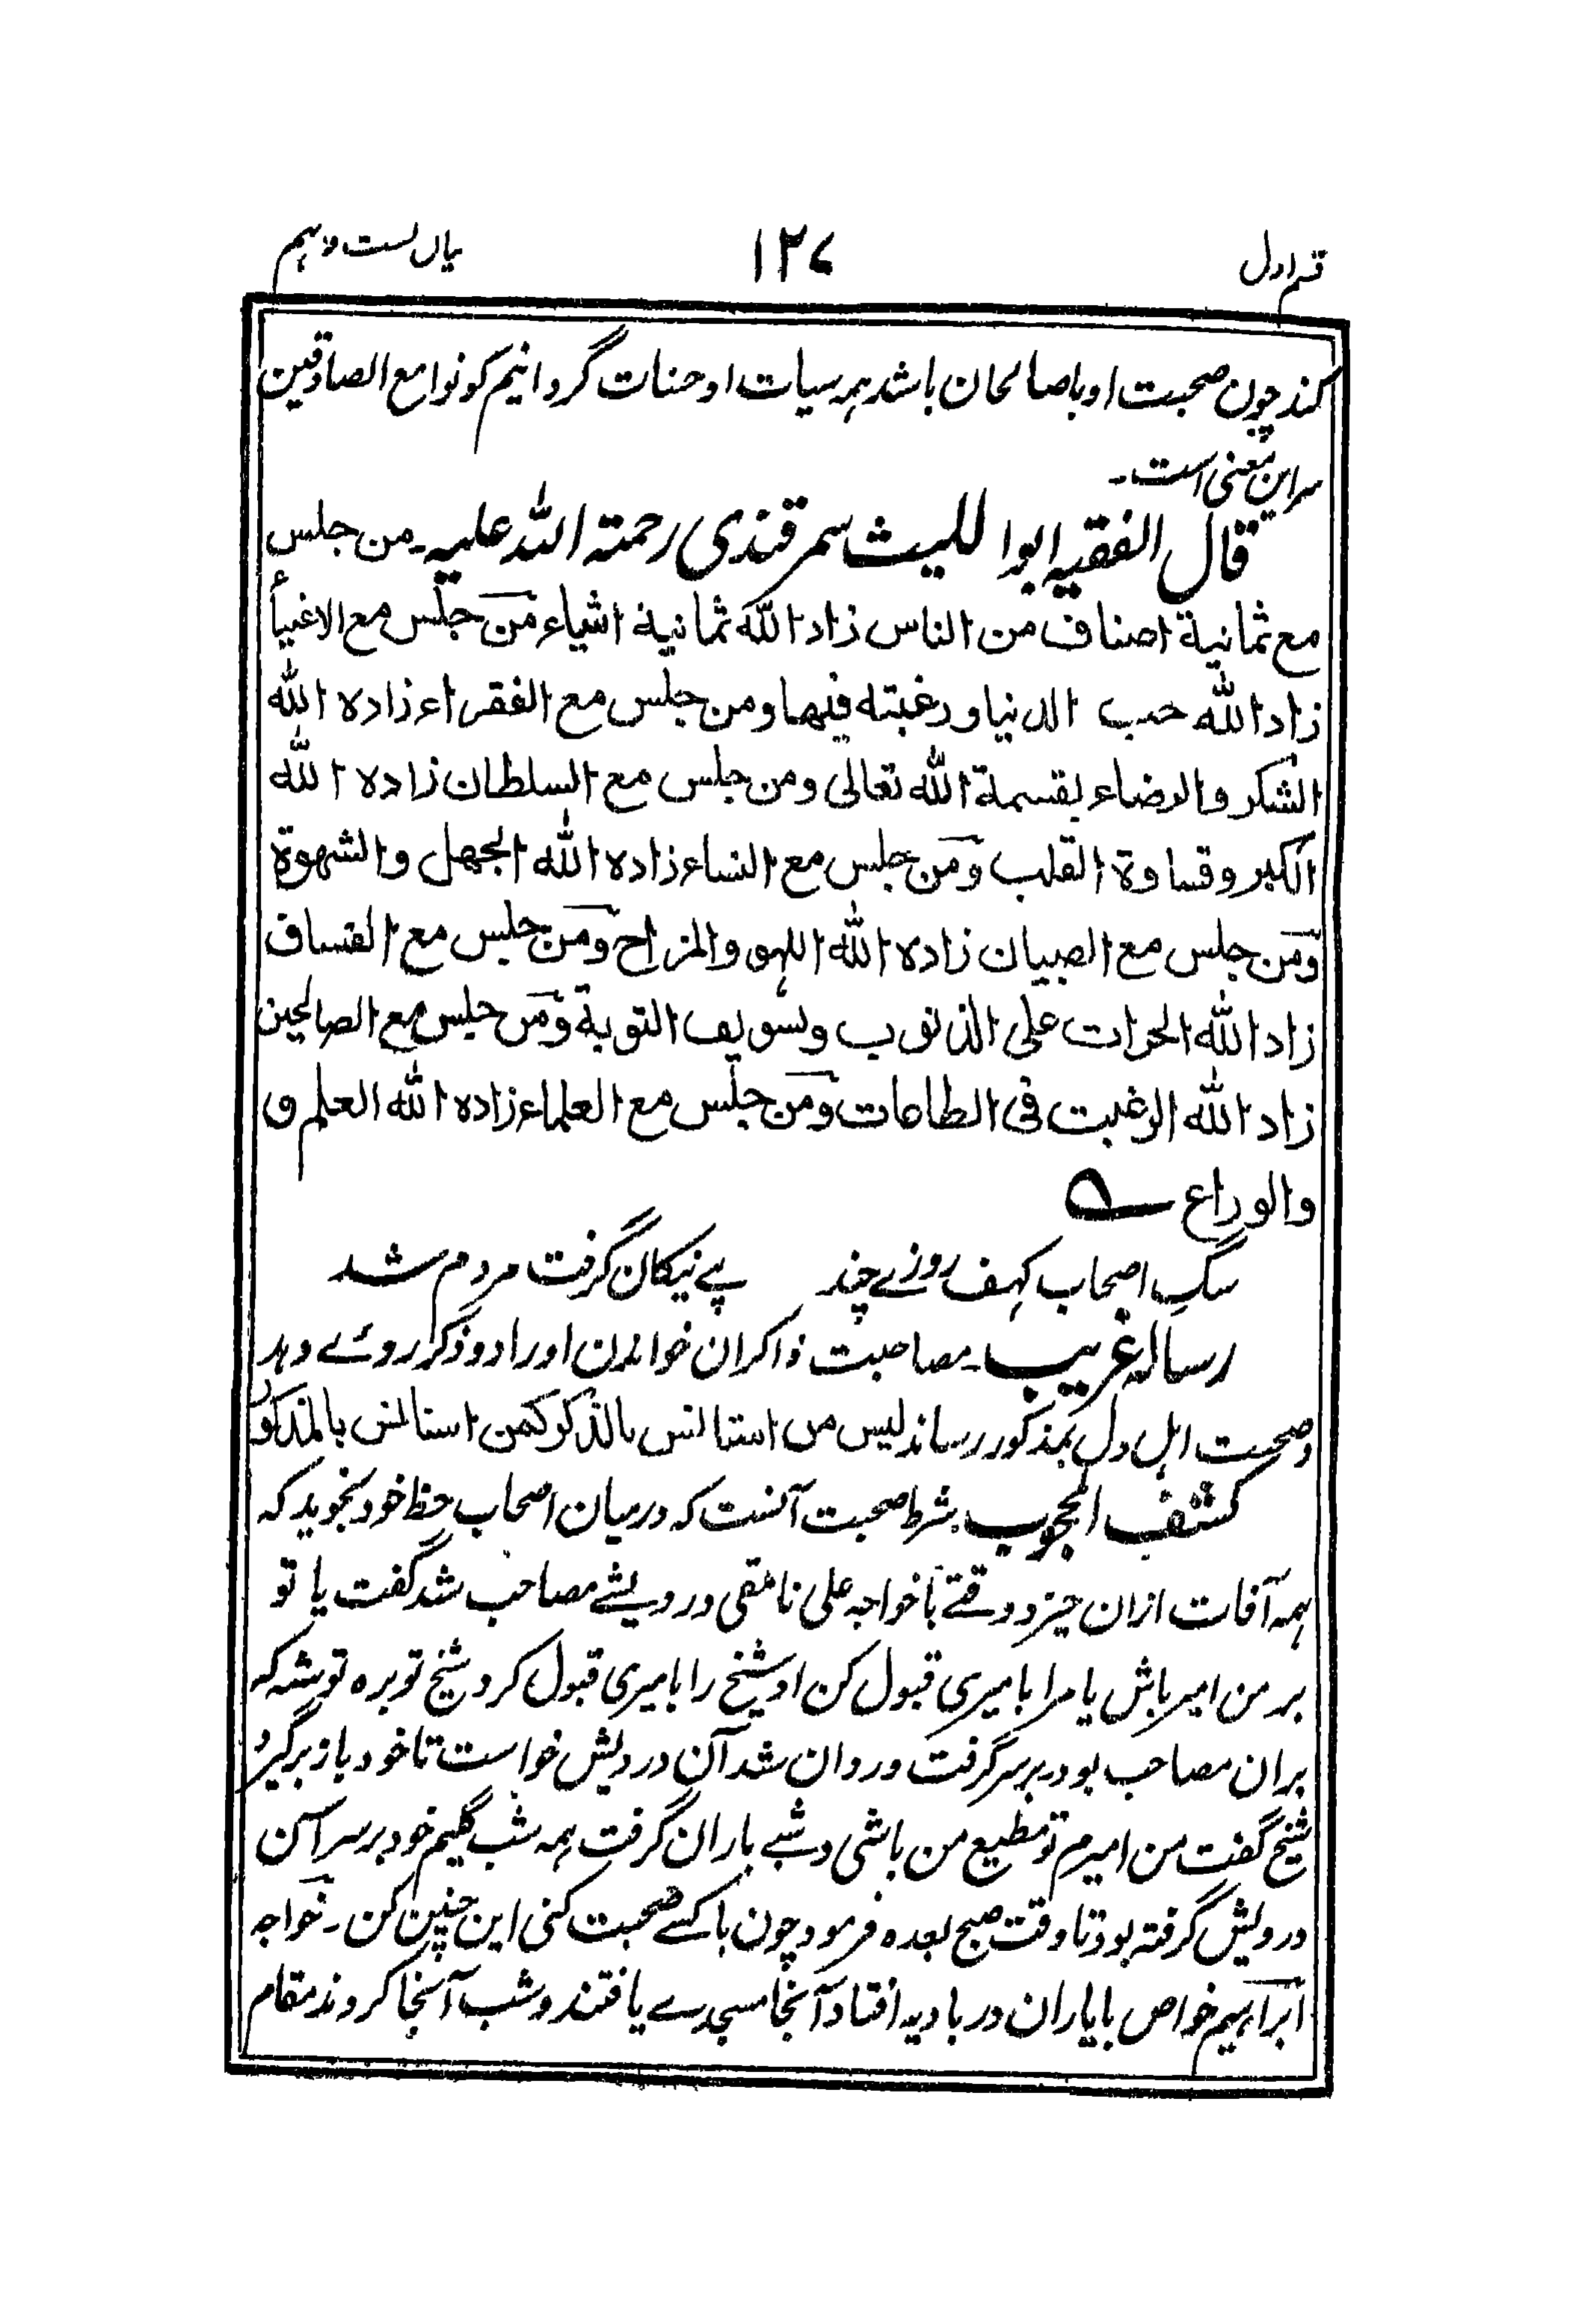 قسم اول ۱۲۷ بیان بست و نہم
کند چون صحبت او با صالحان باشد ہمہ سیات او حسنات گردانیم کونوا مع الصادقین
سر این معنی است۔
قال الفقیہ ابوا للیث سمرقندی رحمتہ اللہ علیہ۔ من جلس
مع ثمانیة اصناف من الناس زاد اللہ ثمانیة اشیاء من جلس مع الاغنیأ
زاد اللہ حب الدنیا و رغبته فیها ومن جلس مع الفقراء زاده اللہ
الشکر والرضاء بقسمة اللہ تعالی ومن جلس مع السلطان زاده اللہ
الکبر و قساوة القلب ومن جلس مع النساء زاده اللہ الجهل والشهوة
ومن جلس مع الصبیان زاده اللہ اللهو والمزاح ومن جلس مع الفساق
زاد اللہ الجرات علی الذنوب وتسویف التوبة ومن جلس مع الصالحین
زاد اللہ الرغبت فی الطاعات ومن جلس مع العلماء زاده اللہ العلم و
والوراع
سگِ اصحاب کہف روزے چند پے نیکان گرفت مردم شد
رسالہ غریب۔ مصاحبت ذاکران خواندن اوراد و ذکر روئے دہد
و صحبت اہل دل بمذکور رساند لیس من استانس بالذکر کمن استانس بالمذکور
کشف المحجوب۔ شرط صحبت آنست کہ درمیان اصحاب حظ خود نجوید کہ
ہمہ آفات ازان خیزد وقتے با خواجہ علی درویشے مصاحب شد گفت یا تو
بر من امیر باش یا مرا بامیری قبول کن او شیخ را بامیری قبول کرد شیخ توبرہ توشہ کہ
بران مصاحب بود بر سر گرفت و روان شد آن درویش خواست تا خود باز برگیرد
شیخ گفت من امیرم تو مطیع من باشی و شبے باران گرفت ہمہ شب گلیم خود بر سر آن
درویش گرفتہ بود تا وقت صبح بعدہ فرمود چون با کسے صحبت کنی این چنین کن۔ خواجہ
ابراہیم خواص با یاران در بادیہ افتاد آنجا مسجدے یافتند و شب آنجا کردند مقام